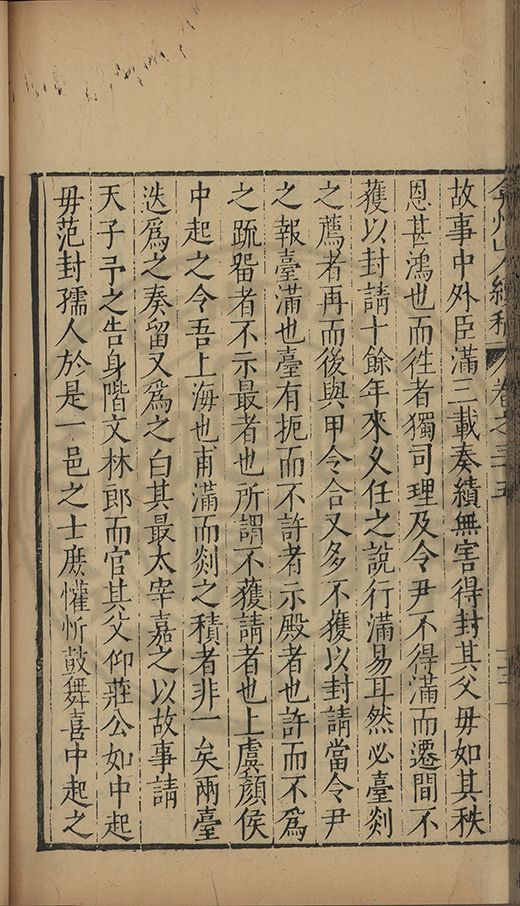 弇州山人續稿 卷之三十五
故事中外臣滿三載奏績無害得封其父毋如其秩
恩甚鴻也而徃者獨司理及令尹不得滿而遷間不
獲以封請十餘年來乆任之說行滿易耳然必臺剡
之薦者再而後與甲令合又多不獲以封請當令尹
之報臺滿也臺有扼而不許者示殿者也許而不爲
之疏畱者不示最者也所謂不獲請者也上虞顏侯
中起之令吾上海也甫滿而剡之積者非一矣兩臺
迭爲之奏留又爲之白其最太宰嘉之以故事請
天子予之告身階文林郎而官其父仰莊公如中起
毋范封孺人於是一邑之士庶懽忻鼓舞喜中起之